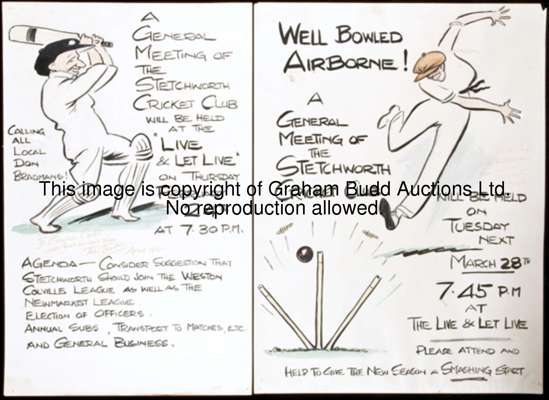 A
GENERAL
MEETING OF
THE
STETCHWORTH
CRICKET CLUB
WILL BE HELD
AT THE
"LIVE
& LET LIVE"
ON THURSDAY
AT 7.30 P.M.
CALLING
ALL
LOCAL
DON
BRADMANS!
AGENDA — CONSIDER SUGGESTION THAT
STETCHWORTH SHOULD JOIN THE WESTON
COLVILLE LEAGUE AS WELL AS THE
NEWMARKET LEAGUE
ELECTION OF OFFICERS.
ANNUAL SUBS, TRANSPORT TO MATCHES, ETC.
AND GENERAL BUSINESS.
WELL BOWLED
AIRBORNE!
A
GENERAL
MEETING OF
THE
STETCHWORTH
CRICKET CLUB
WILL BE HELD
ON
TUESDAY
NEXT
MARCH 28TH
7.45 P.M
AT
THE LIVE & LET LIVE
PLEASE ATTEND AND
HELP TO GIVE THE NEW SEASON A SMASHING START
This image is copyright of Graham Budd Auctions Ltd.
No reproduction allowed